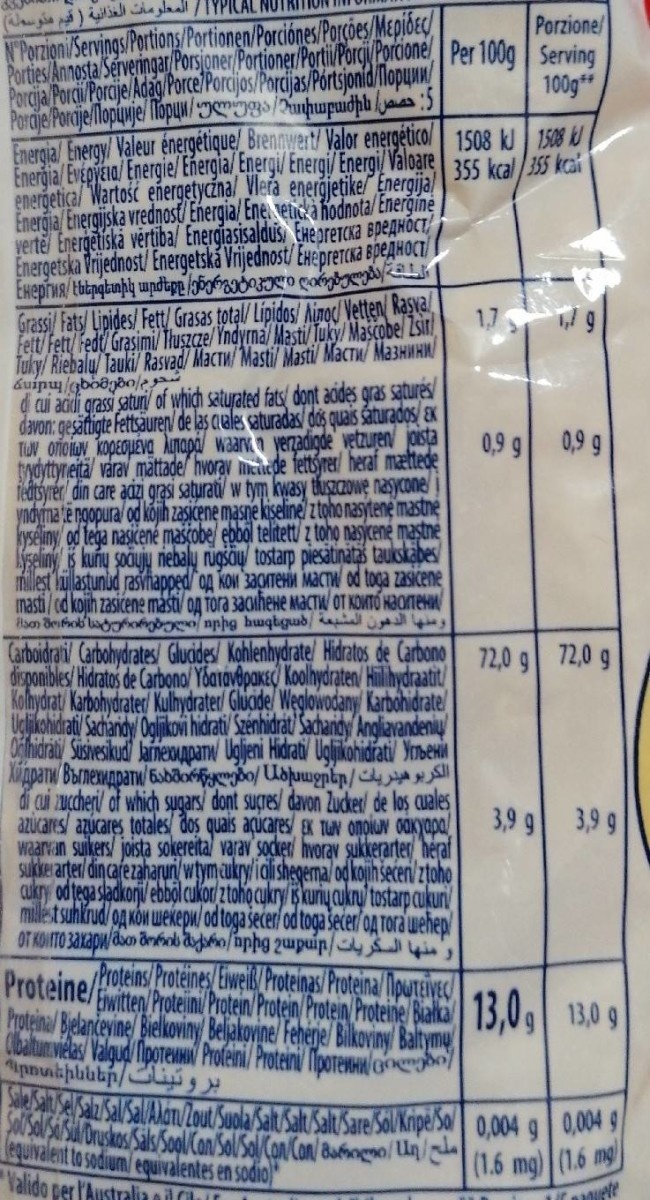 المعلومات الغذائية ( قيم متوسطة)/TYPICAL NUTRITION
N°Porzioni/Servings/Portions/Portionen/Porciónes/Porções/Μερίδες/
Porties/Annosta/Serveringar/Porsjoner/Portioner/Portii/Porcji/Porcione/
Porcija/Porcii/Porcije/Adag/Porce/Porcijos/Porcijas/Portsjonid/Порции/
Porcije/Porcije/Порције/Порции/ულუფა/Չափաբաժին/حصص :5
Per 100g
Porzione/
Serving
100g**
Energia/ Energy/ Valeur énergétique/ Brennwert/ Valor energético/
Energia/ Ενέργεια/ Energie/ Energia/ Energi/ Energi/ Energi/ Valoare
energetica/ Wartość energetyczna/ Vlera energjetike/ Energija/
Energia/ Energijska vrednost/ Energia/ Energetická hodnota/ Energinė
vertė/ Enerģētiskā vērtība/ Energiasisaldus/ Енергетска вредност/
Energetska Vrijednost/ Energetska Vrijednost/ Енергетска вредност/
Енергия/ Էներգետիկ արժեքը /ენერგეტიკული ღირებულება/
1508 kJ 1508 kJ
355 kcal/ 355 kcal
Grassi/ Fats/ Lipides/ Fett/ Grasas total/ Lípidos/ Λίπος/ Vetten/ Rasva/
Fett/ Fett/ Fedt/ Grasimi/ Tłuszcze/ Yndyrna/ Masti/ Tuky/ Mašcobe/ Zsír/
Tuky/ Riebalu/ Tauki/ Rasvad/ Масти/ Masti/ Masti/ Масти/ Мазнини/
ճարպ/ცხიმები/شحوم
1,7 g 1,7 g
di cui acidi grassi saturi/ of which saturated fats/ dont acides gras saturés/
davon: gesättigte Fettsäuren/ de las cuales saturadas/ dos quais saturados/ εκ
των οποίων κορεσμένα λιπαρά/ waarvan verzadigde vetzuren/ joista
tyydyttyneitä/ varav mättade/ hvorav mettede fettsyrer/ heraf mættede
fedtsyrer/ din care acizi grasi saturati/ w tym kwasy tłuszczowe nasycone/ i
yndyrna të ngopura/ od kojih zasićene masne kiseline/ z toho nasytené mastné
kyseliny/ od tega nasičene maščobe/ ebből telített/ z toho nasycené mastné
kyseliny/ iš kurių sočiųjų riebalų rūgščių/ tostarp piesātinātās taukskābes/
millest küllastunud rasvhapped/ од кои заситени масти/ od toga zasićene
masti/ od kojih zasićene masti/ од тога засићене масти/ от които наситени/
მათ შორის ნაჯერი/ որից հագեցած/ ومنها الدهون المشبعة
0,9 g 0,9 g
Carboidrati/ Carbohydrates/ Glucides/ Kohlenhydrate/ Hidratos de Carbono
disponibles/ Hidratos de Carbono/ Υδατάνθρακες/ Koolhydraten/ Hiilihydraatit/
Kolhydrat/ Karbohydrater/ Kulhydrater/ Glucide/ Węglowodany/ Karbohidrate/
Ugljikohidrati/ Sacharidy/ Ogljikovi hidrati/ Szénhidrát/ Sacharidy/ Angliavandenių/
Ogļhidrāti/ Süsivesikud/ Јаглехидрати/ Ugljeni Hidrati/ Ugljikohidrati/ Угљени
Хидрати/ Въглехидрати/ ნახშირწყლები/ Ածխաջրեր/ الكربوهيدريات
72,0 g 72,0 g
di cui zuccheri/ of which sugars/ dont sucres/ davon Zucker/ de los cuales
azúcares/ azucares totales/ dos quais açucares/ εκ των οποίων σάκχαρα/
waarvan suikers/ joista sokereita/ varav socker/ hvorav sukkerarter/ heraf
sukkerarter/ din care zaharuri/ w tym cukry/ i cili shegerna/ od kojih šećeri/ z toho
cukry/ od tega sladkorji/ ebből cukor/ z toho cukry/ iš kurių cukrų/ tostarp cukuri/
millest suhkrud/ од кои шеќери/ od toga šećer/ od toga šećer/ од тога шећер/
от които захари/ მათ შორის შაქარი/ որից շաքար/ و منها السكريات
3,9 g 3,9 g
Proteine/ Proteins/ Protéines/ Eiweiß/ Proteínas/ Proteina/ Πρωτεΐνες/
Eiwitten/ Proteiini/ Protein/ Protein/ Protein/ Proteine/ Białka/
Proteina/ Bjelančevine/ Bielkoviny/ Beljakovine/ Fehérje/ Bílkoviny/ Baltymų/
Olbaltumvielas/ Valgud/ Протеини/ Proteini/ Proteini/ Протеини/ ცილები/
Սպիտակուցներ/ بروتينات
13,0 g 13,0 g
Sale/Salt/Sel/Salz/Sal/Sal/Αλάτι/Zout/Suola/Salt/Salt/Salt/Sare/Sól/Kripë/So/
Sol/Sol/Só/Sůl/Druskos/Sāls/Sool/Сол/Sol/Sol/Сол/Сол/ მარილი/ Աղ/ ملح
(equivalent to sodium/ equivalentes en sodio)*
0,004 g 0,004 g
(1.6 mg) (1.6 mg)
* Valido per l'Australia e il